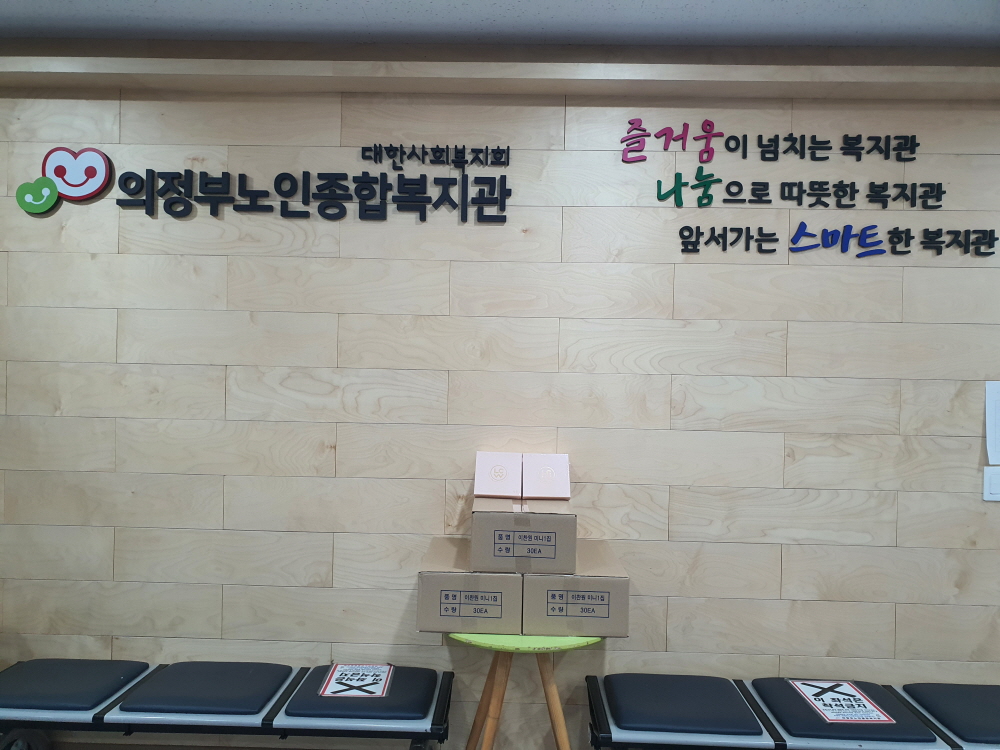 대한사회복지회
의정부노인종합복지관
즐거움이 넘치는 복지관
나눔으로 따뜻한 복지관
앞서가는 스마트한 복지관
품 명 이천원 미니1접
수 량 30EA
품 명 이천원 미니1접
수 량 30EA
품 명 이천원 미니1접
수 량 30EA
이 좌석은
착석금지